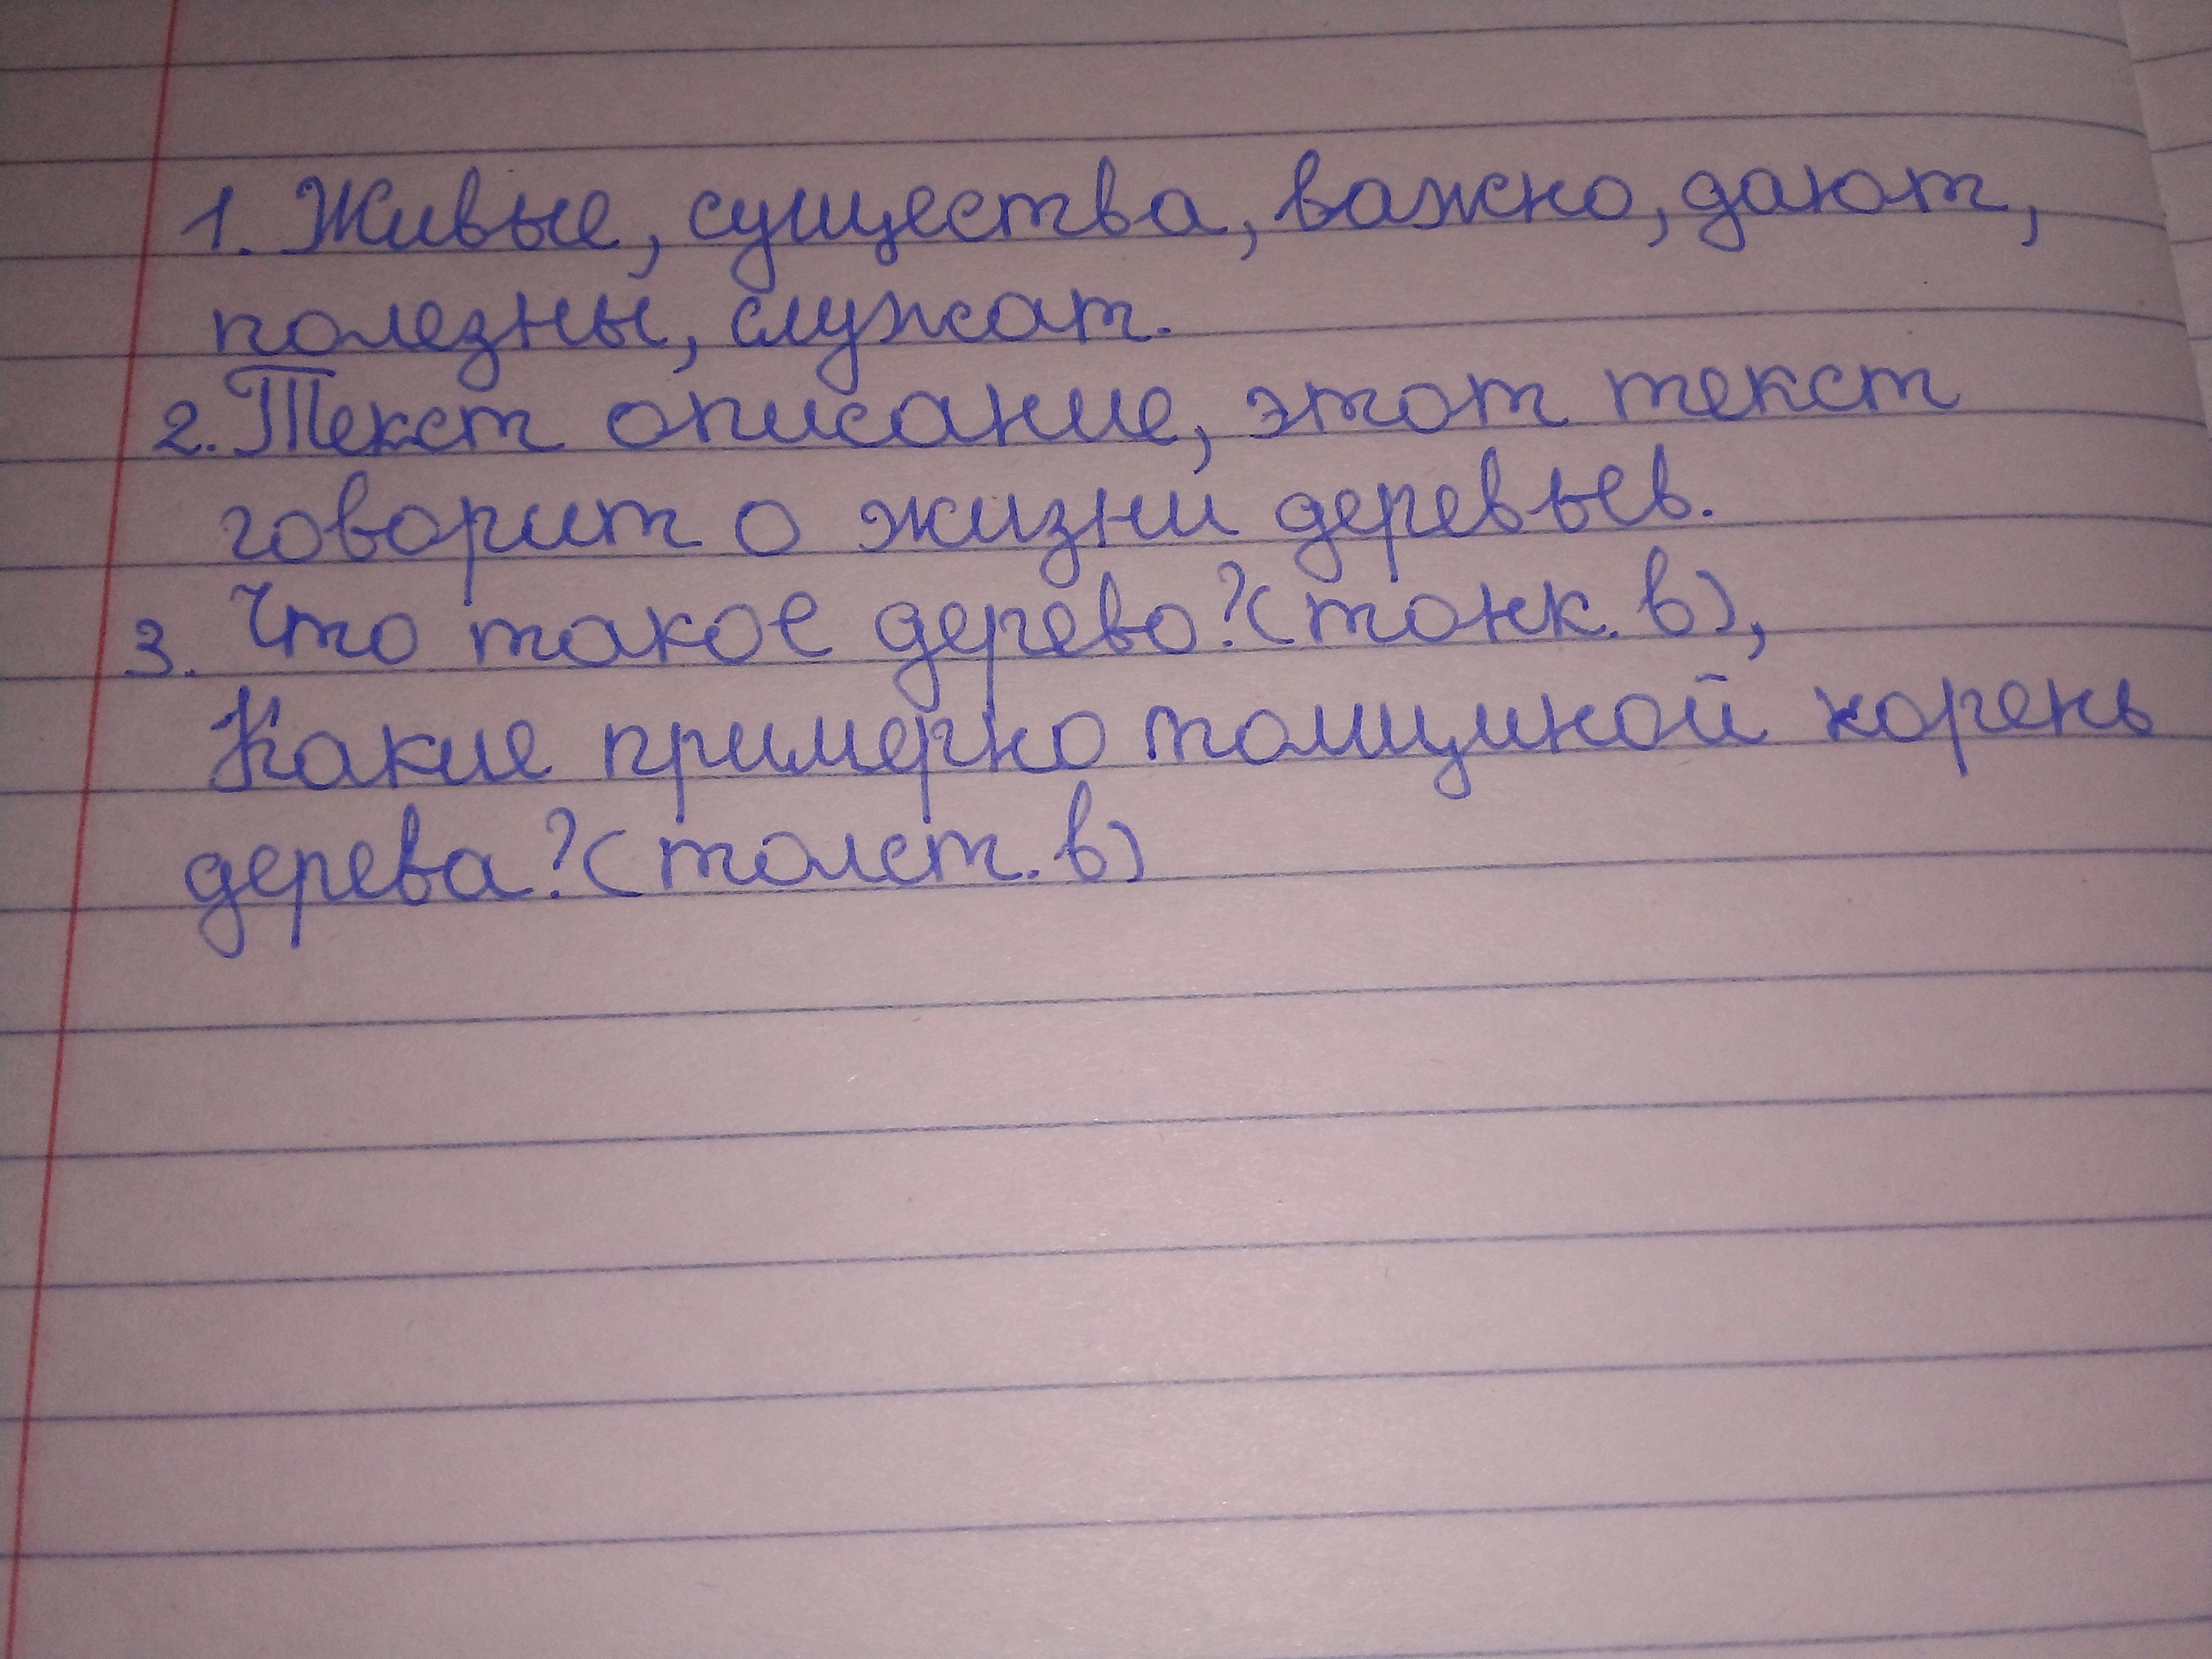 1. Живые, существа, важно, дают,
полезны, служат.
2. Текст описание, этот текст
говорит о жизни деревьев.
3. Что такое дерево? (тонк. в),
Какие примерно толщиной корень
дерева? (толст. в)